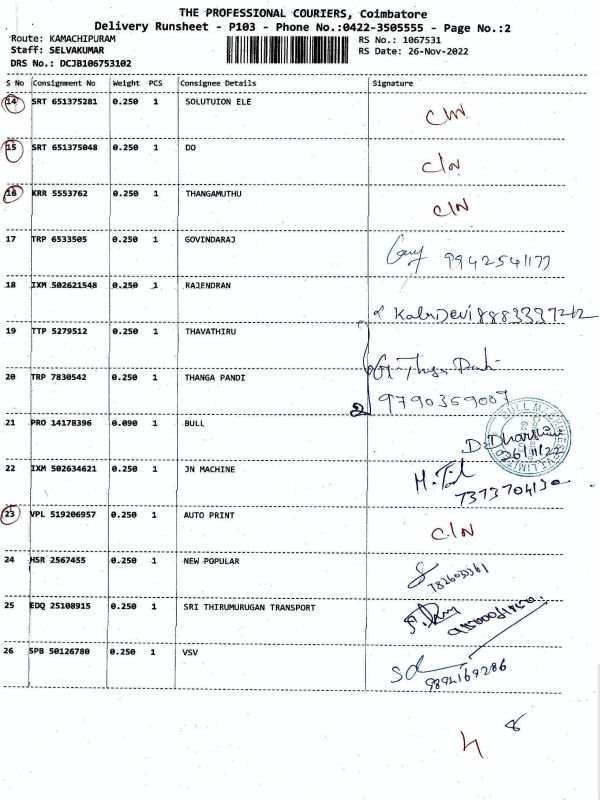 THE PROFESSIONAL COURIERS, Coimbatore
Delivery Runsheet - P103 - Phone No.:0422-3505555 - Page No.:2
Route: KAMACHIPURAM RS No.: 1067531
Staff: SELVAKUMAR RS Date: 26-Nov-2022
DRS No.: DCJB106753102
S No Consignment No Weight PCS Consignee Details Signature
14 SRT 651375281 0.250 1 SOLUTUION ELE C/N
15 SRT 651375048 0.250 1 DO C/N
16 KRR 5553762 0.250 1 THANGAMUTHU C/N
17 TRP 6533505 0.250 1 GOVINDARAJ
18 IXM 502621548 0.250 1 RAJENDRAN
19 TTP 5279512 0.250 1 THAVATHIRU
20 TRP 7830542 0.250 1 THANGA PANDI
2 9790359007
21 PRO 14178396 0.090 1 BULL
26/11/22
22 IXM 502634621 0.250 1 JN MACHINE
23 VPL 519206957 0.250 1 AUTO PRINT C/N
24 HSR 2567455 0.250 1 NEW POPULAR
25 EDQ 25108915 0.250 1 SRI THIRUMURUGAN TRANSPORT
26 SPB 50126780 0.250 1 VSV
9894169286
8
4